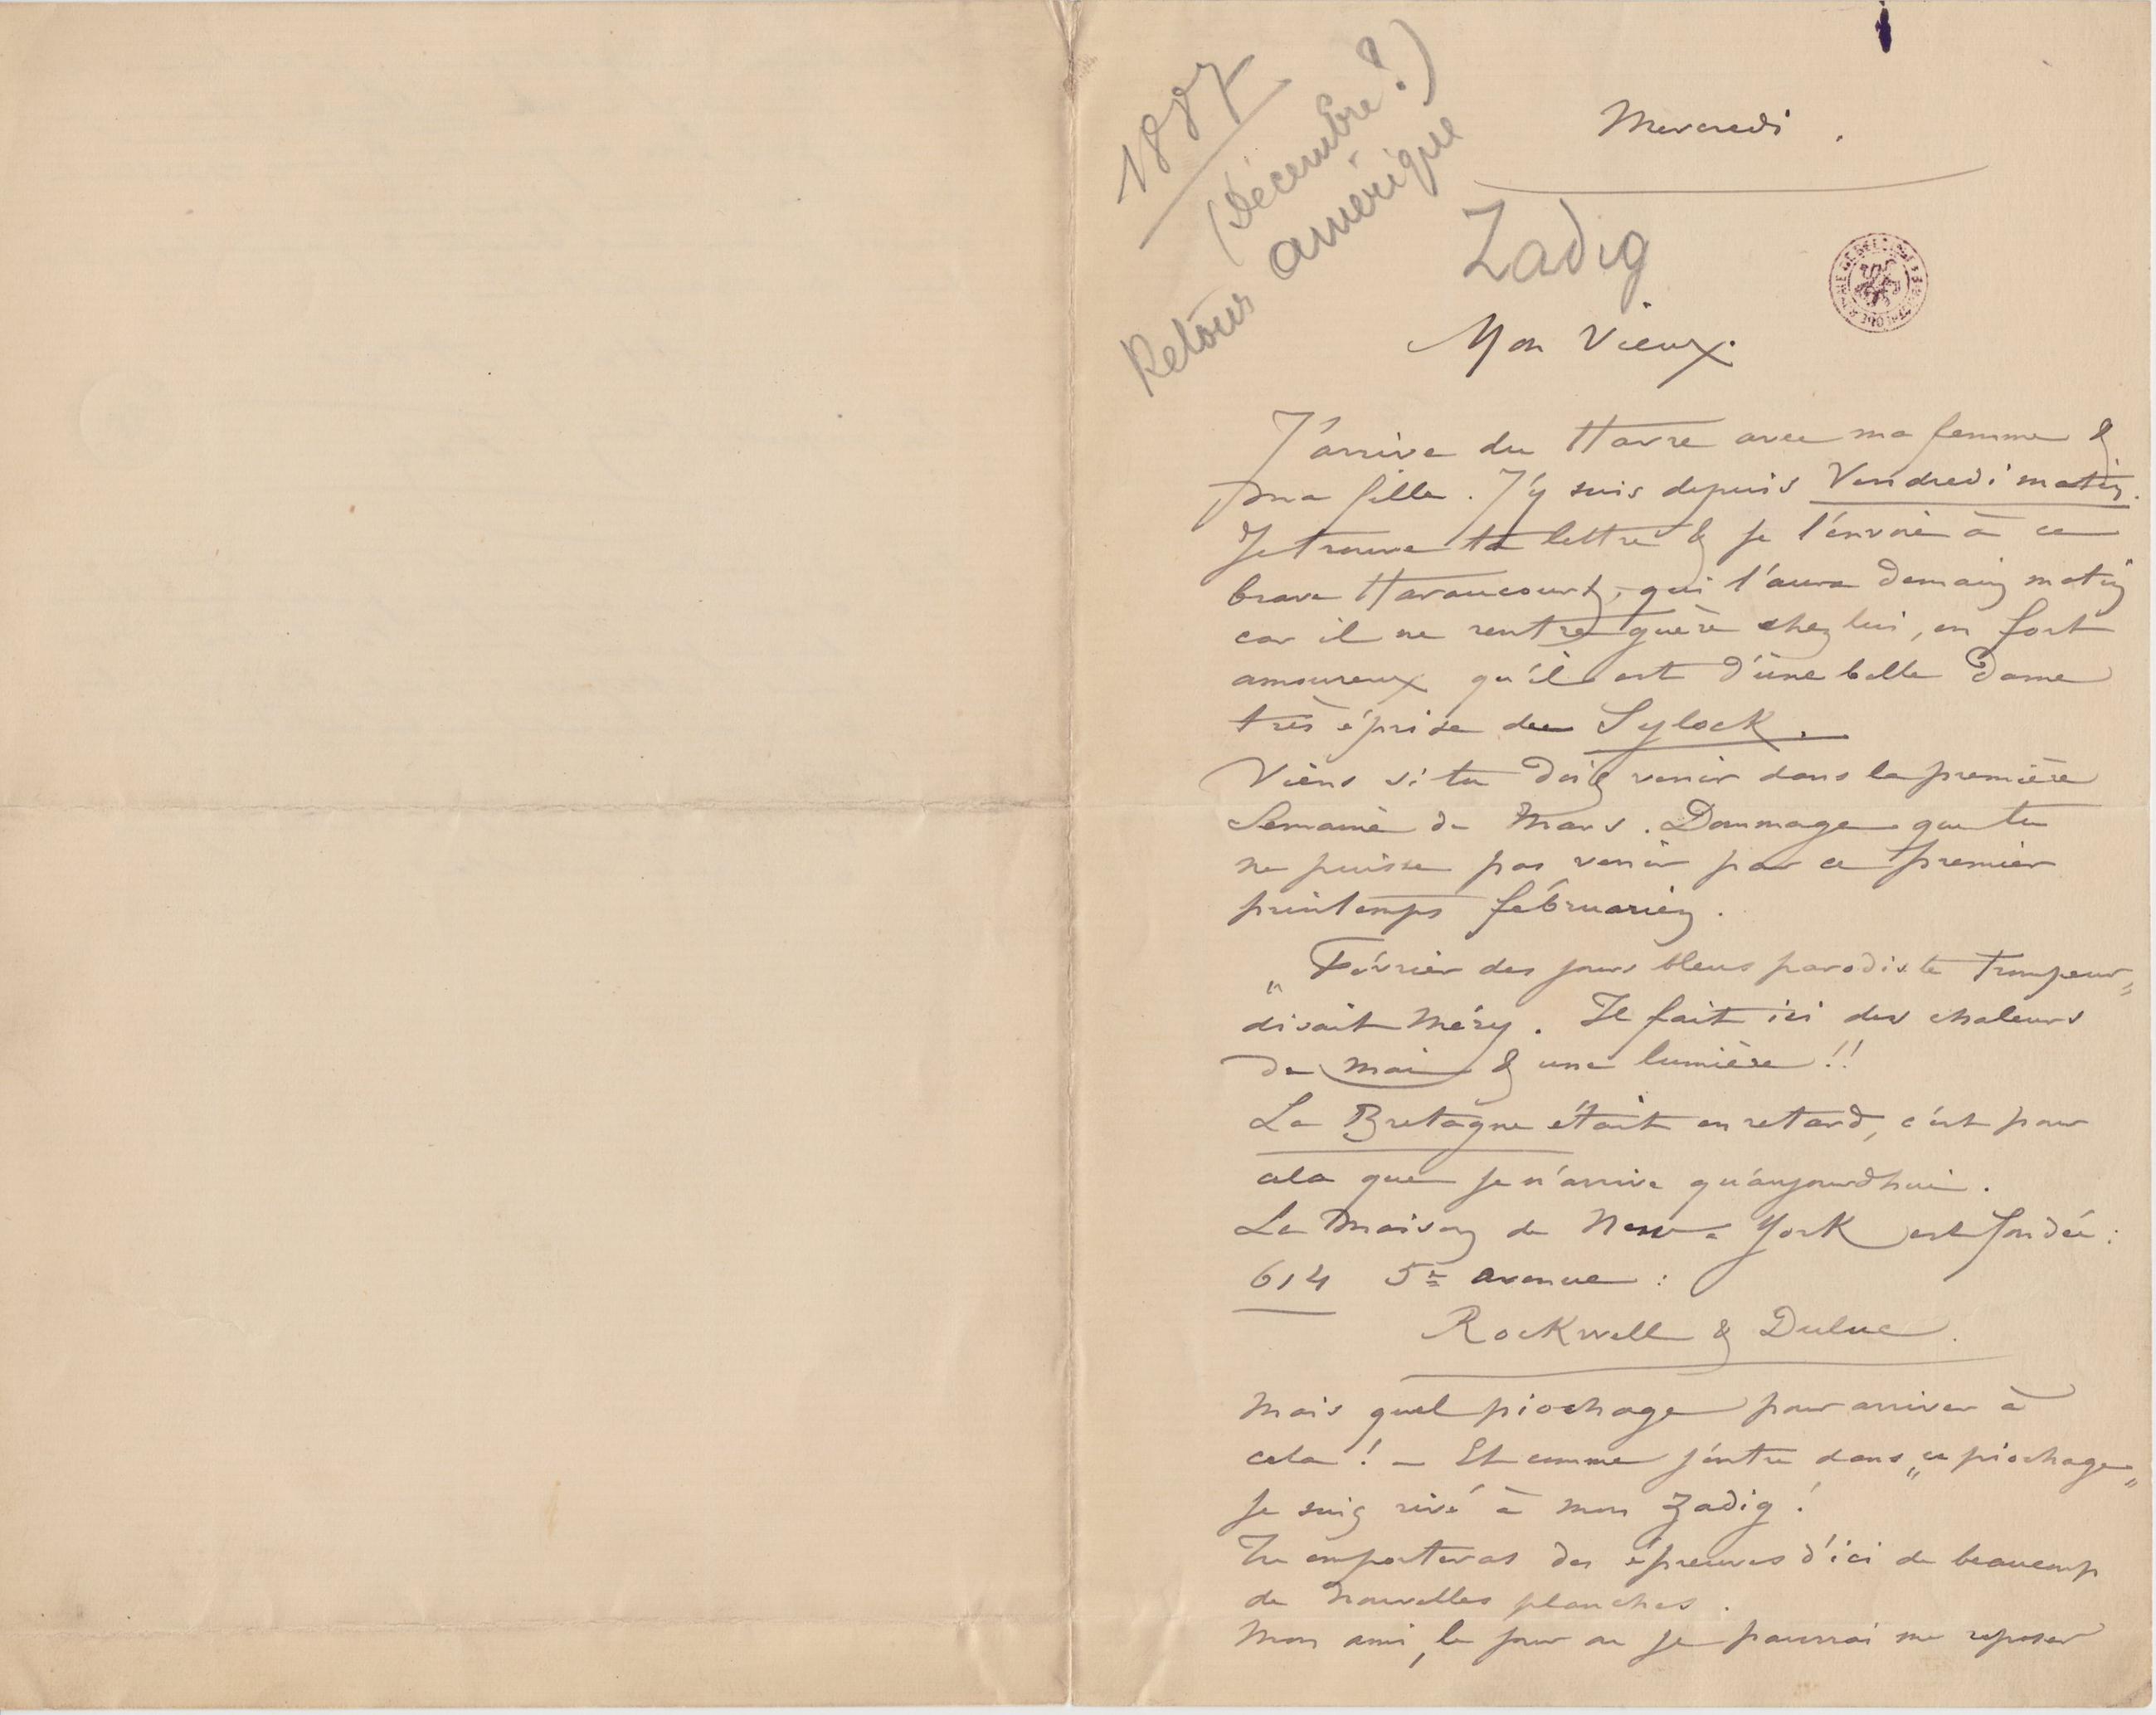 1887
(Décembre?)
Retour amérique
Mercredi.
Zadig
Mon Vieux.
J'arrive du Havre avec ma femme &
ma fille. J'y suis depuis Vendredi matin.
Je trouve ta lettre & je l'envoie à ce
brave Haraucourt, qui l'aura demain matin
car il ne rentre guère chez lui, en fort
amoureux qu'il est d'une belle Dame
très éprise de Sylock.
Viens si tu dois venir dans la première
Semaine de Mars. Dommage que tu
ne puisse pas venir par ce premier
printemps februarien.
„ Février des jours bleus parodiste trompeur „
disait Méry. Il fait ici des chaleurs
de mai & une lumière !!
La Bretagne était en retard, c'est pour
cela que je n'arrive qu'aujourdhui.
La Maison de New-York est fondée :
614 5e avenue :
Rockwell & Duluc.
Mais quel piochage pour arriver à
cela ! — Et comme j'entre dans „ ce piochage „
je suis rivé à mon Zadig !
Tu emporteras des épreuves d'ici de beaucoup
de nouvelles planches.
Mon ami, le jour ou je pourrai me reposer